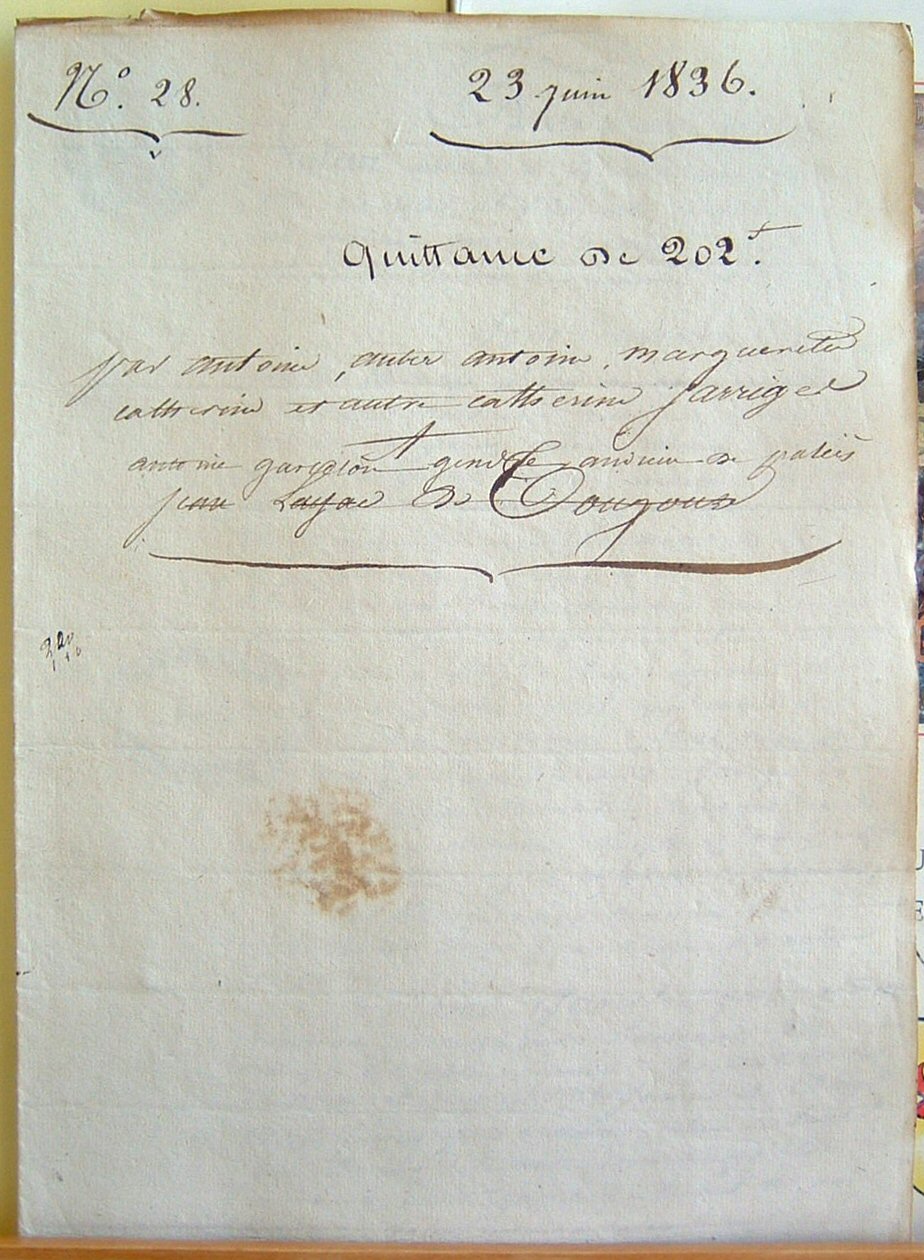 N.º 28.
23 juin 1836.
Quittance de 202.f
par antoine, autre antoine, marguerite
catherine et autre catherine Jarrige
A
antoine gendre andrieu de
jean de
220